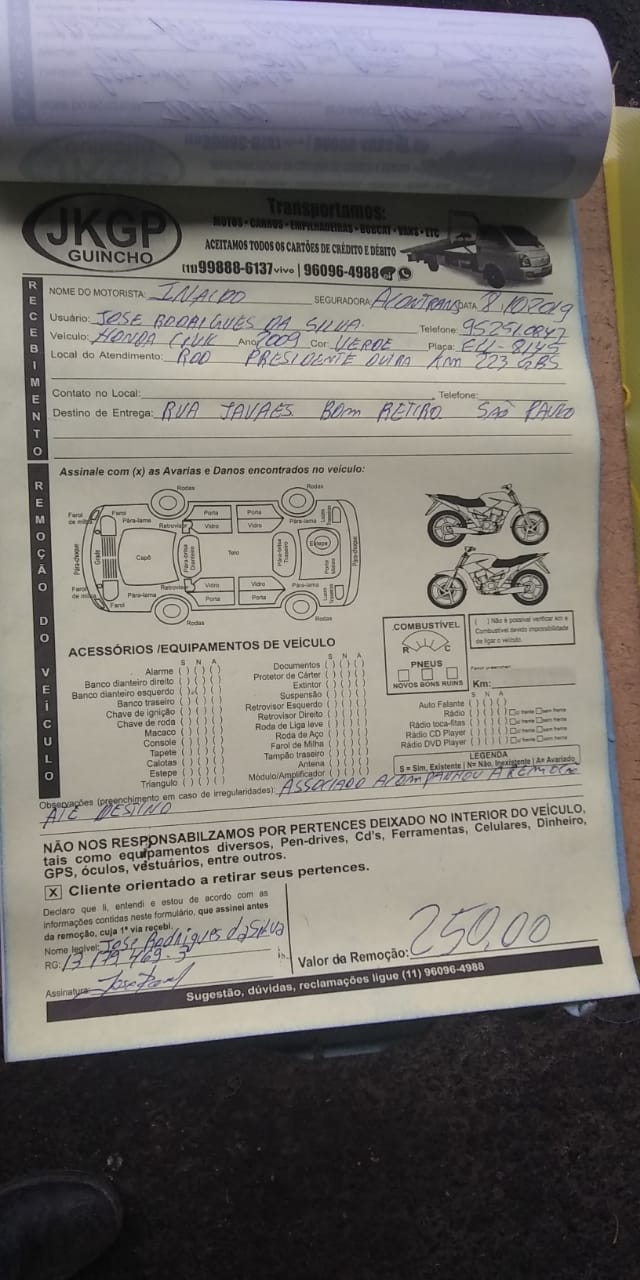 JKGP
GUINCHO
Transportamos:
MOTOS - CARROS - EMPILHADEIRAS - BOBCAT - VANS - ETC
ACEITAMOS TODOS OS CARTÕES DE CRÉDITO E DÉBITO
(11) 99888-6137 vivo | 96096-4988
RECEBIMENTO
NOME DO MOTORISTA: INALDO SEGURADORA: ACONTRANS DATA 8.10.2019
Usuário: JOSE RODRIGUES DA SILVA Telefone: 952510847
Veículo: HONDA CIVIC Ano 2009 Cor: VERDE Placa: 8145
Local do Atendimento: ROD PRESIDENTE DUTRA Km 223 GBS
Contato no Local: Telefone:
Destino de Entrega: RUA JAVAES BOM RETIRO SAO PAULO
REMOÇÃO DO VEÍCULO
Assinale com (x) as Avarias e Danos encontrados no veículo:
Rodas Rodas
Farol de milha Farol Pára-lama Retrovisor Porta Vidro Porta Vidro Pára-lama
Pára-choque Grade Capô Pára-brisa Dianteiro Teto Pára-brisa Traseiro Estepe Porta Malas Pára-choque
Farol Pára-lama Retrovisor Vidro Porta Vidro Porta Pára-lama
Rodas Rodas
ACESSÓRIOS /EQUIPAMENTOS DE VEÍCULO
S N A
Alarme ( ) ( ) ( )
Banco dianteiro direito ( ) ( ) ( )
Banco dianteiro esquerdo ( ) ( ) ( )
Banco traseiro ( ) ( ) ( )
Chave de ignição ( ) ( ) ( )
Chave de roda ( ) ( ) ( )
Macaco ( ) ( ) ( )
Console ( ) ( ) ( )
Tapete ( ) ( ) ( )
Calotas ( ) ( ) ( )
Estepe ( ) ( ) ( )
Triangulo ( ) ( ) ( )
S N A
Documentos ( ) ( ) ( )
Protetor de Cárter ( ) ( ) ( )
Extintor ( ) ( ) ( )
Suspensão ( ) ( ) ( )
Retrovisor Esquerdo ( ) ( ) ( )
Retrovisor Direito ( ) ( ) ( )
Roda de Liga leve ( ) ( ) ( )
Roda de Aço ( ) ( ) ( )
Farol de Milha ( ) ( ) ( )
Tampão traseiro ( ) ( ) ( )
Antena ( ) ( ) ( )
Módulo/Amplificador ( ) ( ) ( )
COMBUSTÍVEL
R C
PNEUS
NOVOS BONS RUINS
( ) Não é possível verificar km e
Combustível devido impossibilidade
de ligar o veículo.
Km:
S N A
Auto Falante ( ) ( ) ( )
Rádio ( ) ( ) ( ) c/ frente sem frente
Rádio toca-fitas ( ) ( ) ( ) c/ frente sem frente
Rádio CD Player ( ) ( ) ( ) c/ frente sem frente
Rádio DVD Player ( ) ( ) ( ) c/ frente sem frente
LEGENDA
S = Sim, Existente | N= Não, Inexistente | A= Avariado
Observações (preenchimento em caso de irregularidades): ASSOCIADO ACOMPANHOU A REMOÇÃO
ATE DESTINO
NÃO NOS RESPONSABILZAMOS POR PERTENCES DEIXADO NO INTERIOR DO VEÍCULO,
tais como equipamentos diversos, Pen-drives, Cd's, Ferramentas, Celulares, Dinheiro,
GPS, óculos, vestuários, entre outros.
X Cliente orientado a retirar seus pertences.
Declaro que li, entendi e estou de acordo com as
informações contidas neste formulário, que assinei antes
da remoção, cuja 1ª via recebi.
Nome legível: Jose Rodrigues da Silva
RG: 13 179 469-3
Assinatura:
Valor da Remoção: 250,00
Sugestão, dúvidas, reclamações ligue (11) 96096-4988